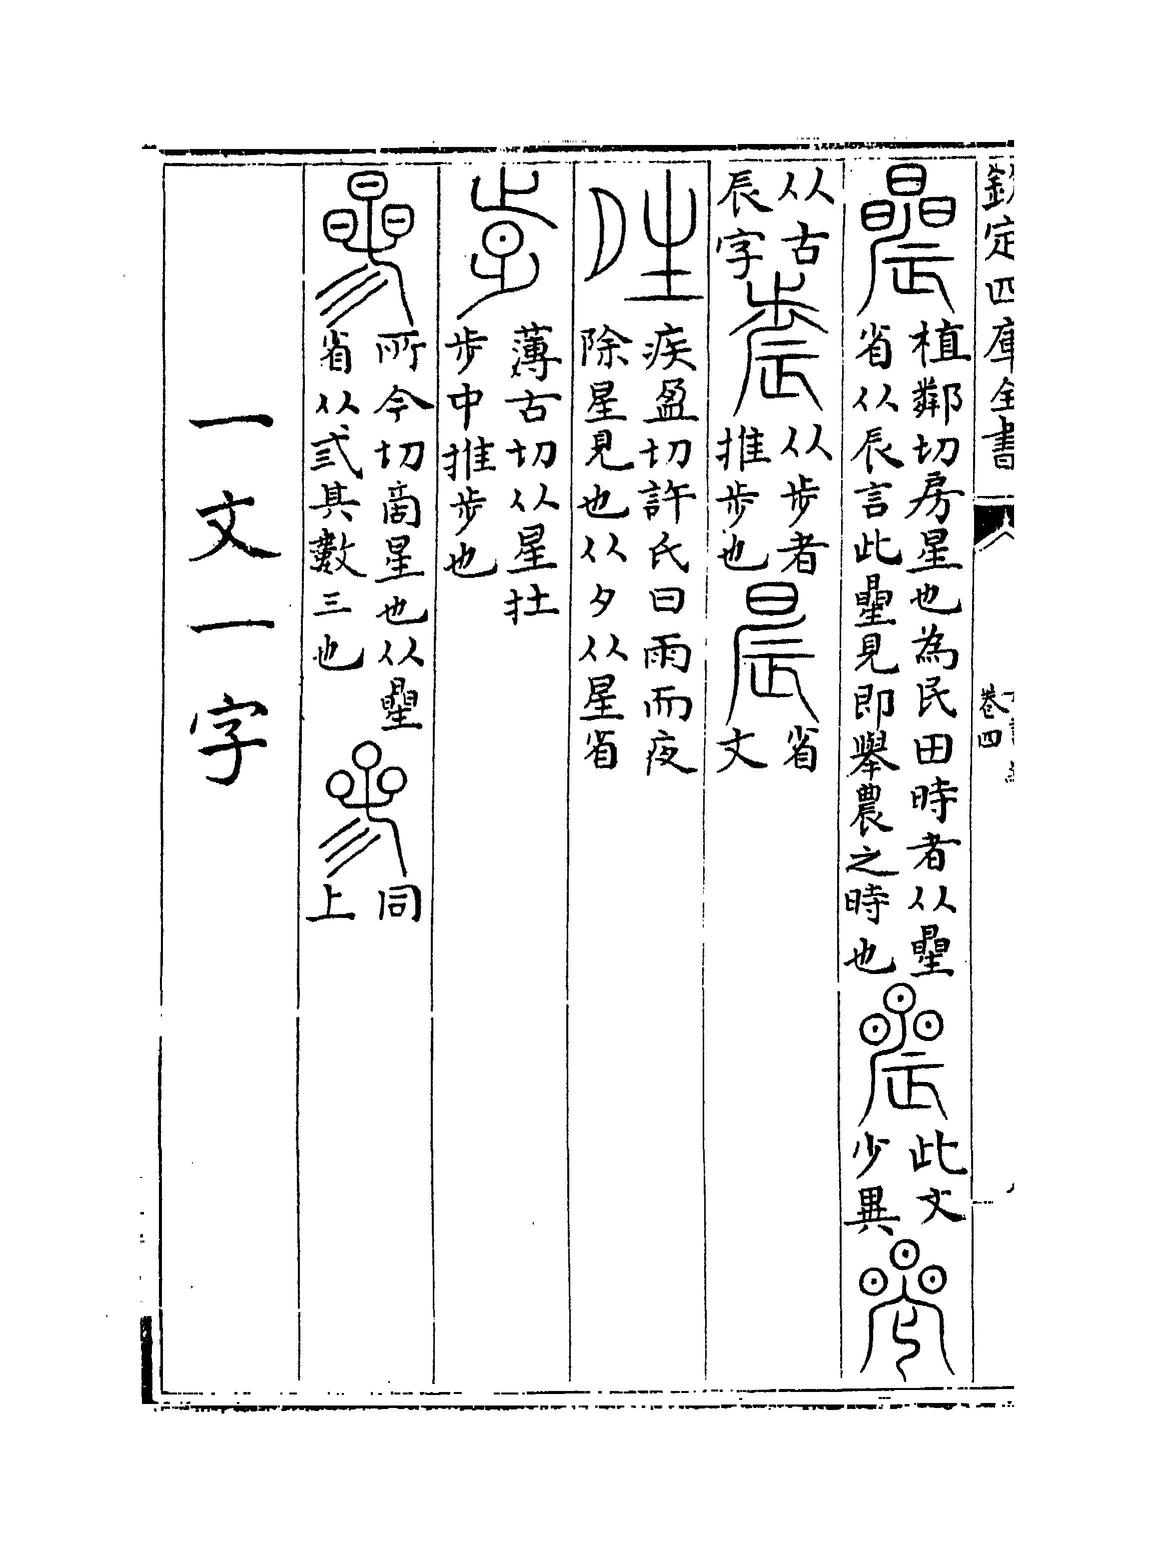 欽定四庫全書
卷四
曟植鄰切房星也為民田時者从曐
省从辰言此曐見即舉農之時也
此文
少異
从古
辰字
从步者
推步也
晨省
文
夝疾盈切許氏曰雨而夜
除星見也从夕从星省
薄古切从星扗
步中推步也
曑所今切商星也从曐
省从弎其數三也
同
上
一文一字